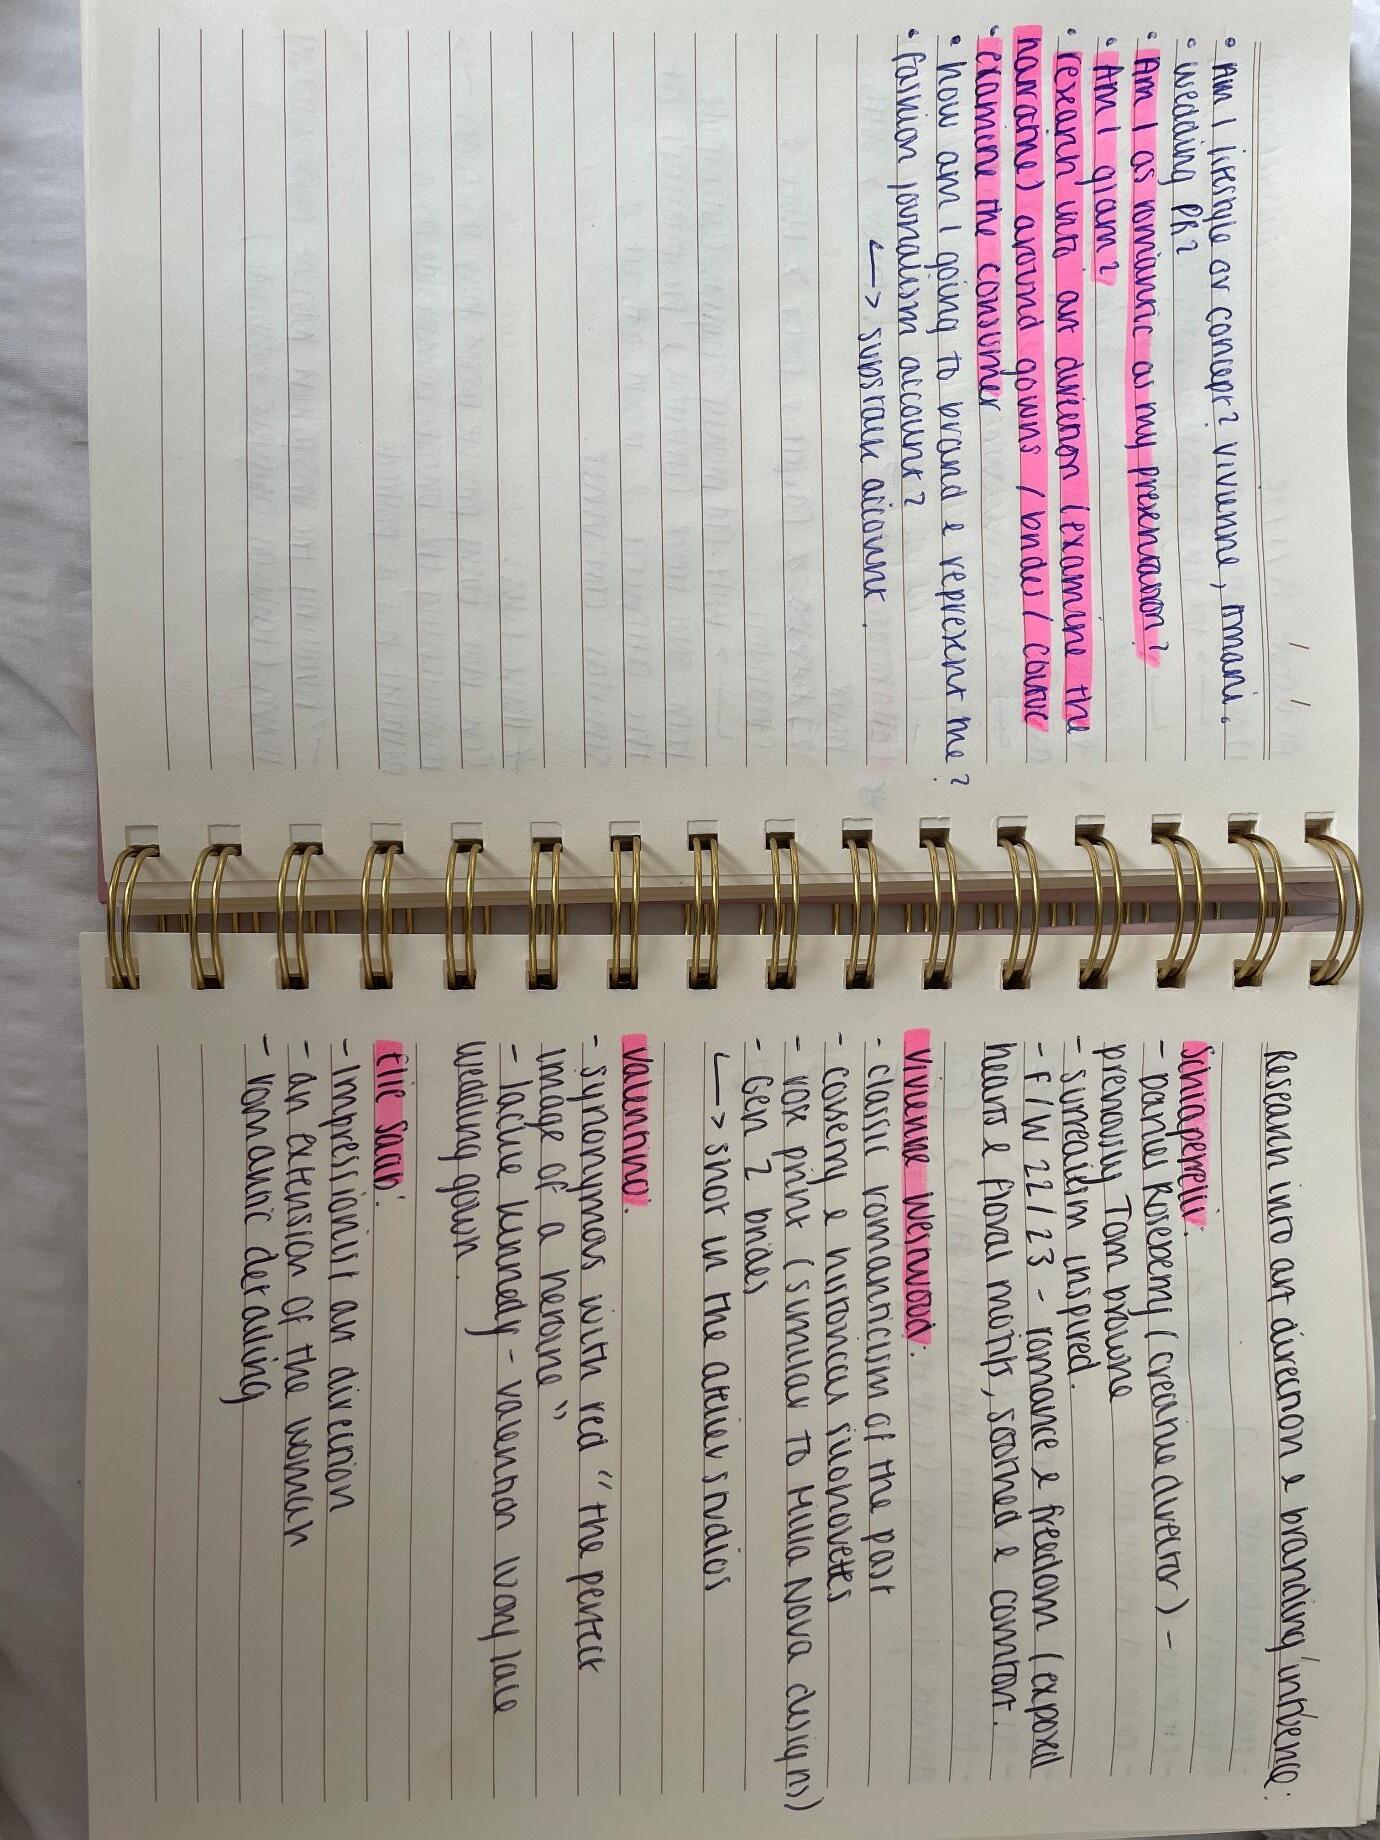 • Am I lifestyle or concept? Vivienne, Armani.
• wedding PR?
• Am I as romantic as my presentation?
• Am I glam?
• research into art direction (examine the
narrative) around gowns / brides / couture
• examine the consumer
• how am I going to brand & represent me?
• fashion journalism account?
↳ substack account.
Research into art direction & branding influence:
Schiaparelli:
- Daniel Roseberry (creative director) -
previously Tom browne
- surrealism inspired.
- F/W 22/23 - romance & freedom (exposed
hearts & floral motifs, scorned & comfort.
Vivienne Westwood:
- classic romanticism of the past
- corsetry & historical silhouettes
- rose print (similar to Milla Nova designs)
- Gen Z brides
↳ shot in the atelier studios
Valentino:
- synonymous with red "the perfect
image of a heroine"
- Jackie Kennedy - valention ivory lace
wedding gown.
Elie Saab:
- Impressionist art direction
- an extension of the woman
- romantic detailing